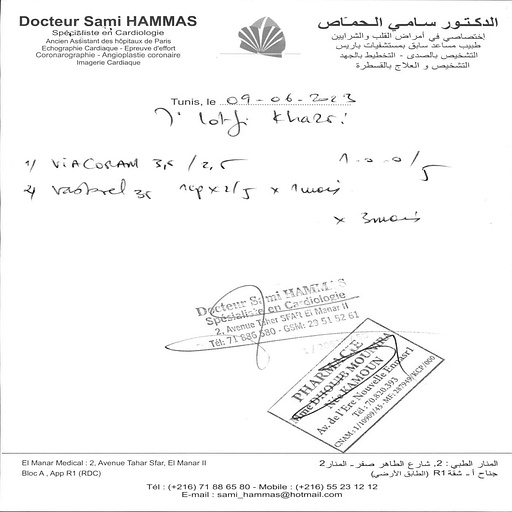 Docteur Sami HAMMAS
Spécialiste en Cardiologie
Ancien Assistant des hôpitaux de Paris
Echographie Cardiaque - Epreuve d'effort
Coronarographie - Angioplastie coronaire
Imagerie Cardiaque
الدكتور سامي الحمّاص
إختصاصي في أمراض القلب والشرايين
طبيب مساعد سابق بمستشفيات باريس
التشخيص بالصدى - التخطيط بالجهد
التشخيص و العلاج بالقسطرة
Tunis, le 09-06-2023
lotfi Khazri
1/ VIACORAM 3,5 / 2,5 1-0-0/5
2/ Vastarel 35 1cp x 2/5 x 1 mois
x 3 mois
Docteur Sami HAMMAS
Spécialiste en Cardiologie
2, Avenue Taher SFAR El Manar II
Tél: 71 886 580 - GSM: 29 51 52 61
PHARMACIE
Mme DHOUIB MOUNIRA
Née KAMOUN
Av. de l'Ere Nouvelle Ennasr1
Tél: 70.820.393
CNAM: 1/10909/45 - MF: 287949/KCP/000
El Manar Medical : 2, Avenue Tahar Sfar, El Manar II
Bloc A , App R1 (RDC)
المنار الطبي : 2, شارع الطاهر صفر - المنار 2
جناح أ - شقة R1 (الطابق الأرضي)
Tél : (+216) 71 88 65 80 - Mobile : (+216) 55 23 12 12
E-mail : sami_hammas@hotmail.com